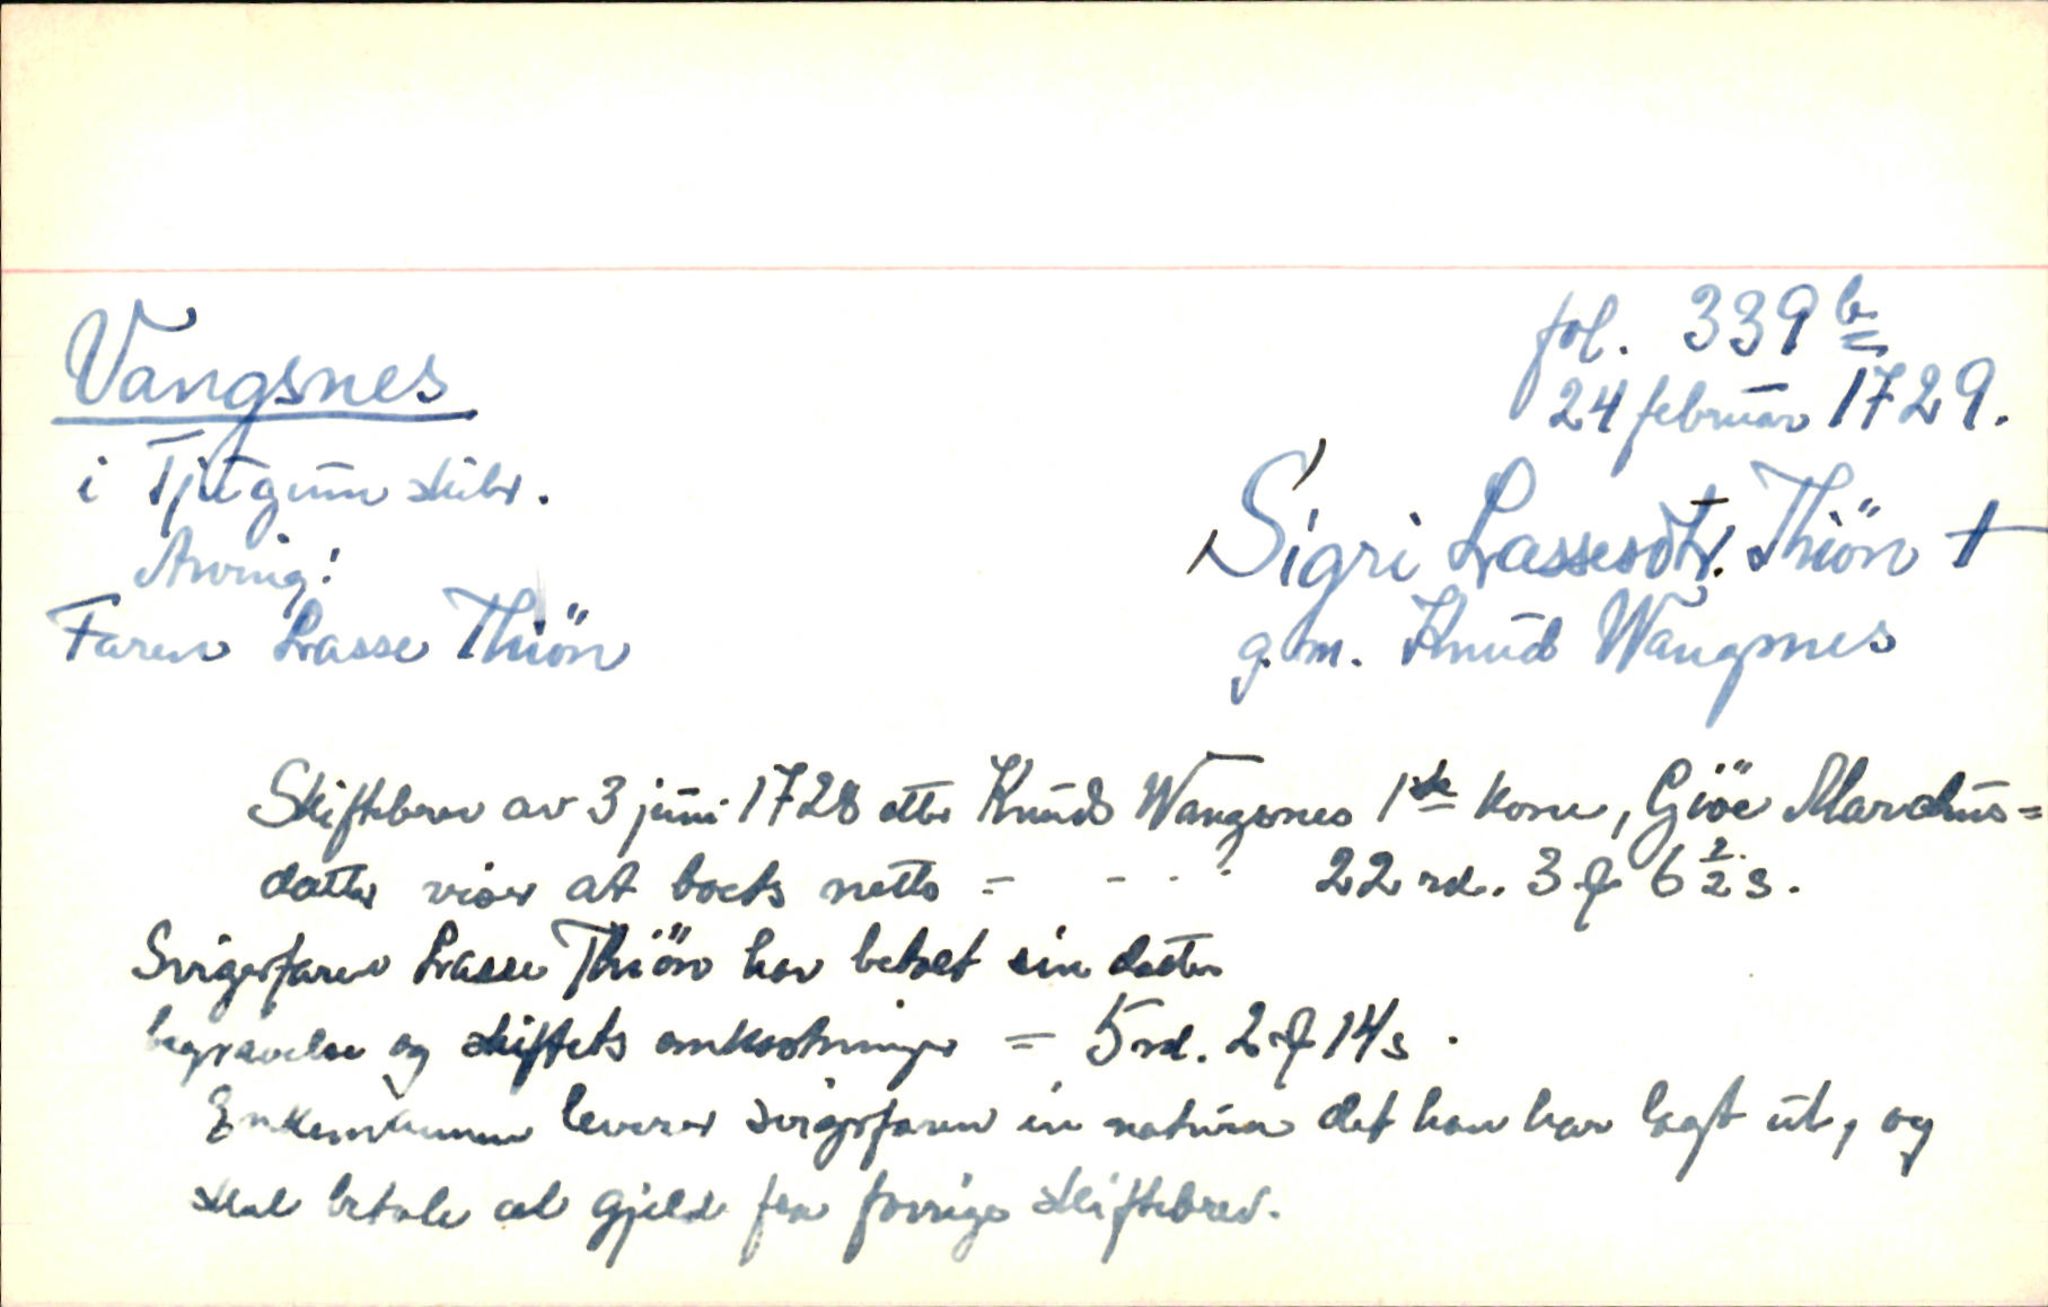 Vangsnes
fol. 339 b
24 februar 1729.
i Tjugum skibr.
Sigri Lassesdtr. Thiön †
Arving:
g. m. Knud Wangsnes
Faren Lasse Thiön
Skiftebrev av 3 juni 1728 etter Knud Wangsnes 1ste kone, Giöe Marchus=
datter viser at boets netto = - - - 22 rd. 3 ℔ 6 1/2 s.
Svigerfaren Lasse Thiön har betalt sin datters
begravelse og skiftets omkostninger = 5 rd. 2 ℔ 14 s.
Enkemannen leverer svigerfaren in natura det han har lagt ut, og
skal betale al gjeld fra forrige skiftebrev.